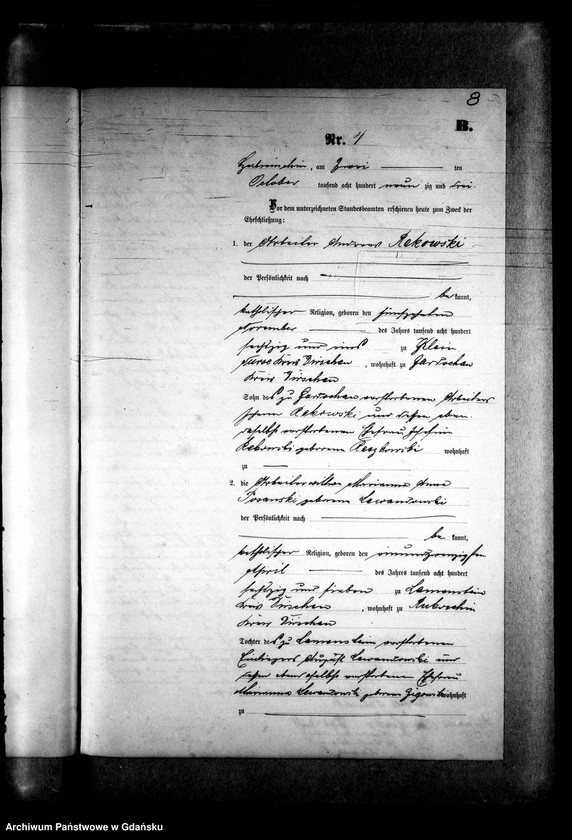 8
B.
Nr. 4
am Zwei ten
October tausend acht hundert neun zig und drei.
Vor dem unterzeichneten Standesbeamten erschienen heute zum Zweck der
Eheschließung:
1. der Arbeiter Andreas Rekowski
der Persönlichkeit nach
be kannt,
katholischer Religion, geboren den fünfzehnten
November des Jahres tausend acht hundert
sechszig und eins zu Klein
Kreis Dirschau, wohnhaft zu Gardschau
Kreis Dirschau
Sohn des zu Gardschau verstorbenen Arbeiters
Johann Rekowski und dessen eben
daselbst verstorbenen Ehefrau Josephine
Rekowski geborene wohnhaft
zu
2. die Arbeiterwittwe Marianna Anna
geborene Lewandowski
der Persönlichkeit nach
be kannt,
katholischer Religion, geboren den einundzwanzigsten
April des Jahres tausend acht hundert
sechszig und sieben zu Lamenstein
Kreis Dirschau, wohnhaft zu Rukoschin
Kreis Dirschau
Tochter des zu Lamenstein verstorbenen
Einliegers August Lewandowski und
dessen ebendaselbst verstorbenen Ehefrau
Marianna Lewandowski geborene wohnhaft
zu
Archiwum Państwowe w Gdańsku